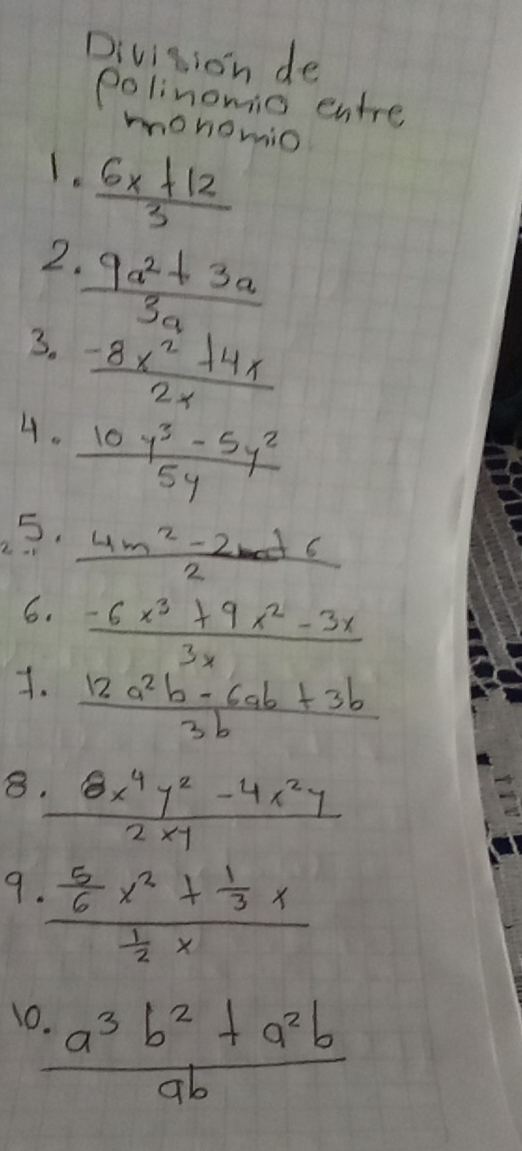 División de
Polinomio entre
monomio
1. 6x + 12
3
2. 9a² + 3a
3a
3. -8x² + 4x
2x
4. 10y³ - 5y²
5y
5. 4m² - 2m + 6
2
6. -6x³ + 9x² - 3x
3x
7. 12a²b - 6ab + 3b
3b
8. 8x⁴y² - 4x²y
2xy
9. 5/6 x² + 1/3 x
1/2 x
10. a³b² + a²b
ab